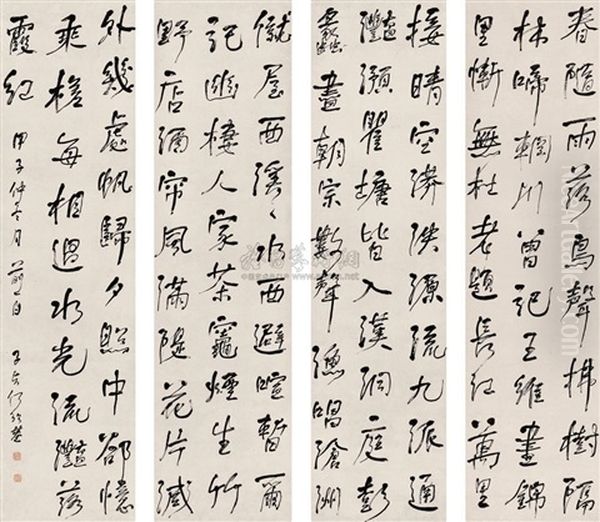 春隨雨落鳥聲拂樹隔
林啼輞川曾記王維畫錦
里慚無杜老題長江萬里
接晴空漭泱源流九派通
灩澦瞿塘皆入漢洞庭彭
蠡盡朝宗數聲漁唱滄洲
僦屋西溪溪水西避喧暫爾
記幽棲人家茶竈煙生竹
野店酒帘風滿隄花片減
外幾處帆歸夕照中卻憶
乘槎每相過水光流灩落
霞紅 甲子仲冬月 子貞何紹基